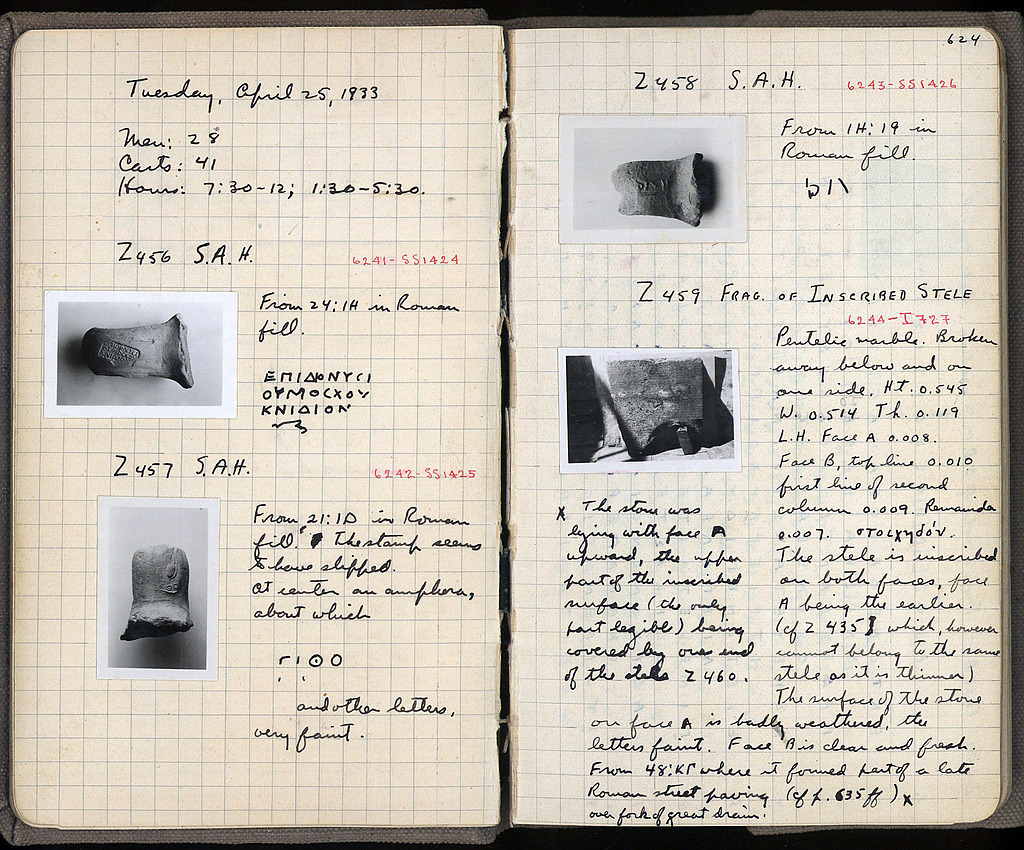 Tuesday, April 25, 1933
Men: 28
Carts: 41
Hours: 7:30-12; 1:30-5:30.
Z 456 S.A.H.
6241-SS1424
From 24:ΙΗ in Roman
fill.
ΕΠΙΔΙΟΝΥCΙ
ΟΥΜΟCΧΟΥ
ΚΝΙΔΙΟΝ
Z 457 S.A.H.
6242-SS1425
From 21:ΙΔ in Roman
fill. The stamp seems
to have slipped.
At center an amphora,
about which
and other letters,
very faint.
624
Z 458 S.A.H.
6243-SS1426
From ΙΗ:19 in
Roman fill.
Z 459 FRAG. OF INSCRIBED STELE
6244-I 727
Pentelic marble. Broken
away below and on
one side. Ht. 0.545
W. 0.514 Th. 0.119
L.H. Face A 0.008.
Face B, top line 0.010
first line of second
column 0.009. Remainder
0.007. στοιχηδόν.
The stele is inscribed
on both faces, face
A being the earlier.
(cf Z 435 which, however
cannot belong to the same
stele as it is thinner)
The surface of the stone
on face A is badly weathered, the
letters faint. Face B is clear and fresh.
From 48:ΚΓ where it formed part of a late
Roman street paving (cf p. 635 ff) x
over fork of great drain.
x The stone was
lying with face A
upward, the upper
part of the inscribed
surface (the only
part legible) being
covered by one end
of the stele Z 460.